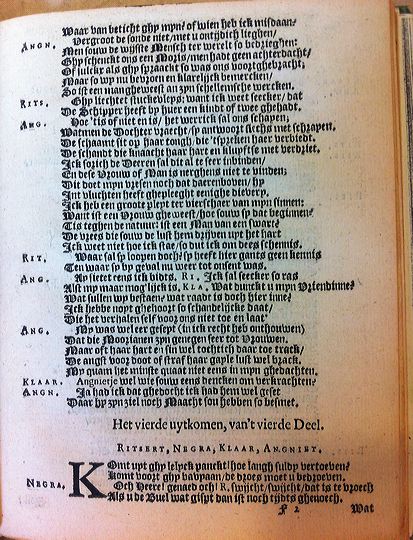 Waar van beticht ghy myn? of wien heb ick misdaan?
ANGN. Vergroot de sonde niet/met u ontydich lieghen/
Men souw de wyste Mensch ter werelt so bedrieghen:
Ghy schenckt ons een Moris/men hadt geen achterdacht/
Of juickt als ghy spraackt so was ons voortghebracht;
Maar so wy nu bevroen en klarelyck bemercken/
So ist een mangheweest an zyn schellemsche wercken.
RITS. Ghy liechtet stuckevleys: want ick weet seecker/dat
De Schipper heeft by hier een kindt of twee ghehadt.
ANG. Hoe 'tis of niet en is/het werrick sal ons schapen;
Wat men de Dochter vraecht/sp antwoort slechts met schrapen.
De schaamt sit op haar tongh/die 'tspreken haer verbiedt.
De schandt die knaacht haar hart en kluyftse met verdriet.
Ick sorch de Deeren sal dit al te seer inbinden/
En dese Vrouw of Man is nerghens niet te vinden;
Dit doet myn vresen noch dat daerenboven/hy
Int vluchten heeft ghepleeght eenighe dievery.
Ick heb een groot pleyt ter vierschaer van myn sinnen:
Want ist een Vrouw gheweest/hoe souw sp dat beginnen?
Tis teghen de natuer: ist een Man van een swart?
De vrees die souw de lust hem dryven upt het hart
Ick weet niet hoe ick stae/so dut ick om dees schennis.
RIT. Waar sal sp loopen doch? sp heeft hier gants geen kennis
Ten waar sp by geval nu weer tot onsent was.
ANG. Ay siet eens ick bids. RI. Ick sal seecker so ras
Alst my maar moglyck is. KLA. Wat dunckt u myn Vriendinne?
Wat sullen wy bestaen? wat raadt is doch hier inne?
Ick hebbe nopt ghehoort so schandelijcke daat/
Die het verhalen self voor ons niet toe en laat
ANG. My was wel eer geseyt (in ick recht he onthouwen)
Dat die Moorianen zyn genegen seer tot Vrouwen.
Maar oft haar hart en sin wel tochtich daar toe track/
De angst voor doot of straf haar gaple lust wel brack.
My quam het minste quaat niet eens in myn ghedachten.
KLAAR. Angnietje wel wie souw eens dencken om verkrachten?
ANGN. Ja had ick dat ghedocht ick had hem wel geset
Daar hy zyn ziel noch Maacht son hebben so besmet.
Het vierde uytkomen, van't vierde Deel.
RITSERT, NEGRA, KLAAR, ANGNIET.
NEGRA. Komt upt ghy lelyck panckt! hoe langh suldy vertoeven?
Komt voort ghy babpaan/de droes moet u bedroeven.
Och Heere! genaed och! R. swijcht/swijcht/dat is te vroech
Als u de Buel wat gispt dan ist noch tijdts ghenoech.
F 2 Wat